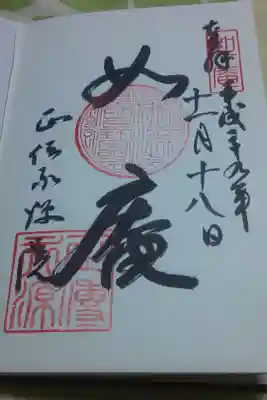 奉拝 平成二十九年
十一月十八日
如庵
正伝永源院